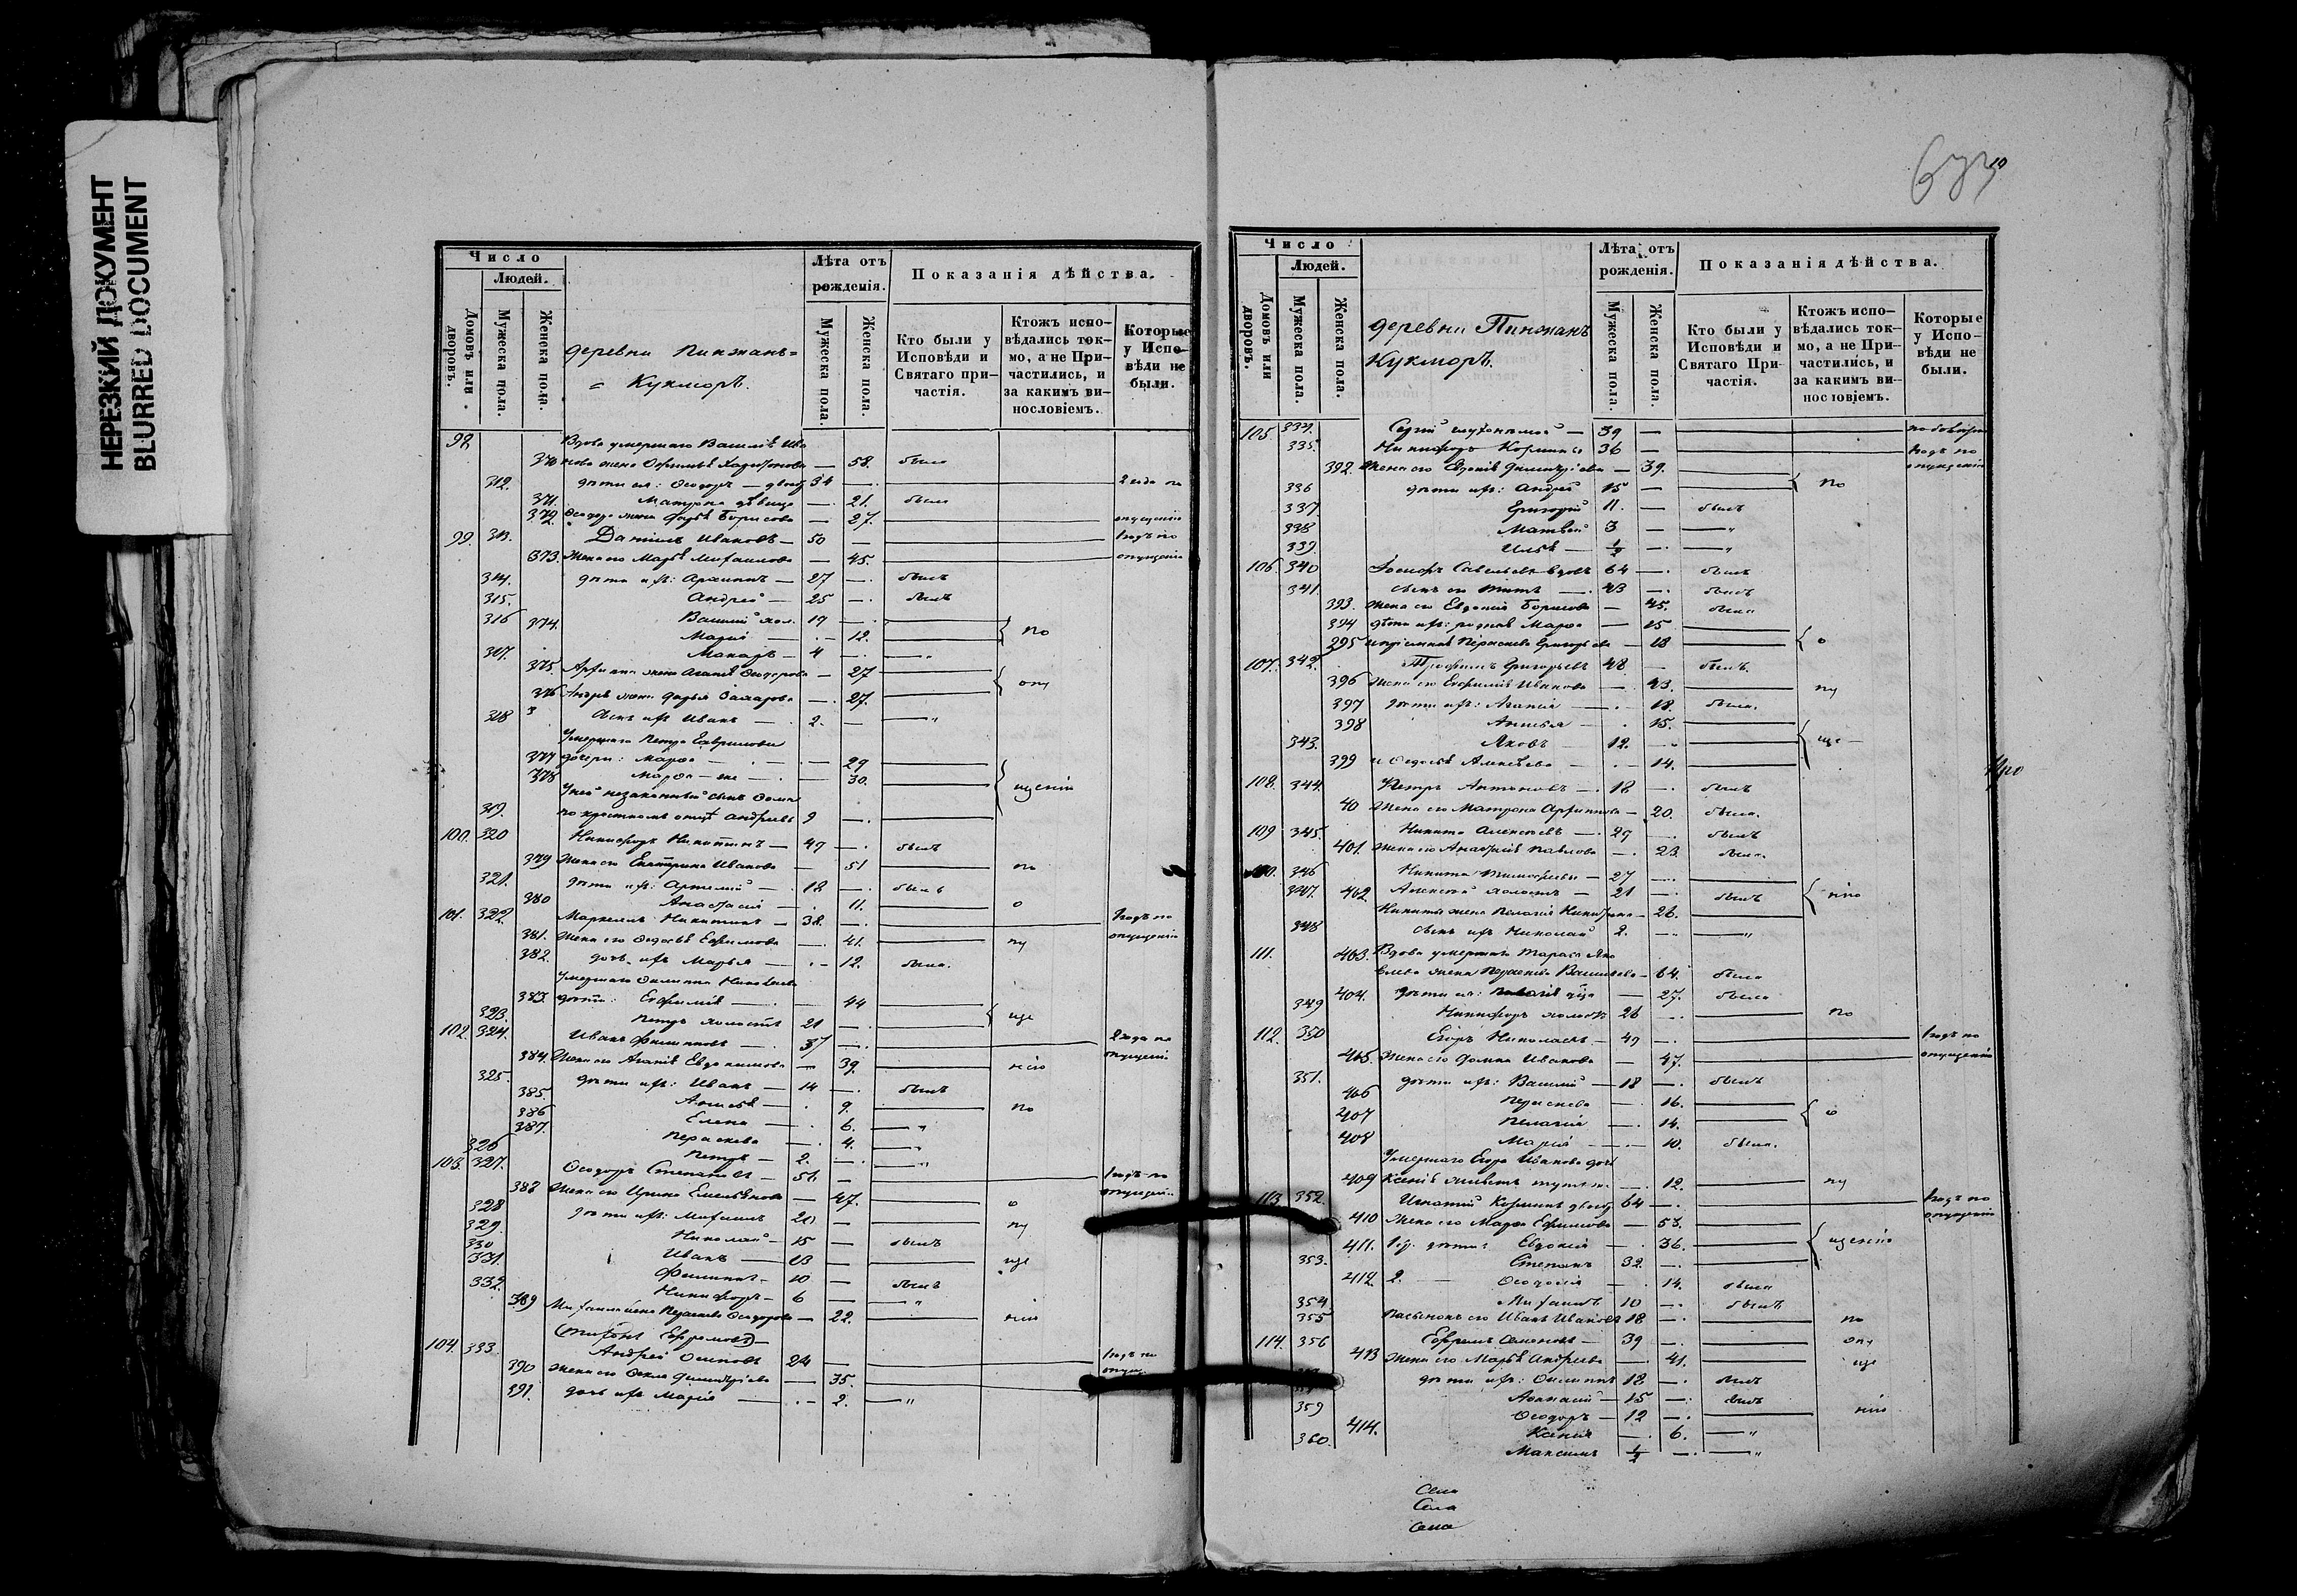 НЕРЕЗКИЙ ДОКУМЕНТ
BLURRED DOCUMENT
Число
Людей.
Домовъ или дворовъ.
Мужеска пола.
Женска пола.
деревни Пинжанъ=
= Кукморъ.
Лѣта отъ рожденія.
Мужеска пола.
Женска пола.
Показанія дѣйства.
Кто были у Исповѣди и Святаго причастія.
Ктожъ исповѣдались токмо, а не Причастились, и за какимъ винословіемъ.
Которые у Исповѣди не были.
98
Вдова умершаго Василія Ива
370 нова жена Евфимія Харитонова — 58. была
312. дѣти ея: Ѳеодоръ — 34 — 2 года по
371. Матрона дѣвица — 21. была
372. Ѳеодора жена Дарья Борисова — 27. опущенію
99. 313. Даніилъ Ивановъ — 50 — 1 годъ по
373. Жена его Марья Михаилова — 45. опущенію
314. дѣти ихъ: Архиппъ — 27 — былъ
315. Андрей — 25 — былъ
316 Василій хол. 17 —
374. Марія — 12. по
317. Макаръ — 4 — "
375. Архиппа жена Агапія Ѳеодорова — 27
376 Андрея жена Дарья Захарова — 27. опу
318 Сынъ ихъ Иванъ — 2. — "
Умершаго Петра Гаврилова
377 дочери: Марѳа — 29
378 Марѳа — же — 30. щенію
У ней незаконный сынъ Ѳома
319. по крестномъ отцѣ Андреевъ 9 —
100. 320 Никифоръ Никитинъ — 47 — былъ
379 Жена его Екатерина Иванова — 51 по
321. дѣти ихъ: Артемій — 18 — былъ
380 Анастасія — 11. о
101. 322. Маркеллъ Никитинъ — 38. — 1 годъ по
381. Жена его Ѳедосья Ефимова — 41. пу опущенію
382. дочь ихъ Марья — 12. была.
Умершаго Филиппа
383. дѣти: Евфимія — 44
323. Петръ холостъ 21 — ще
102. 324. Иванъ Филипповъ — 37 — 2 года по
384. Жена его Агапія Евдокимова — 39. нію опущенію
325. дѣти ихъ: Иванъ — 14 — былъ
385. Анисья — 9. по
386 Елена — 6. "
387. Параскева — 4. "
326 Петръ — 2. — "
103. 327. Ѳеодоръ Степановъ — 51. — 1 годъ по
388 Жена его Ирина Емельянова — 47. о опущенію
328 дѣти ихъ: Михаилъ 20 — пу
329. Николай — 15 — былъ
330 Иванъ — 13 — ще
331. Филиппъ — 10 — былъ
332. Никифоръ — 6 — "
389 Михаила жена Параскева Ѳеодорова — 22. нію
104. 333. Андрей Осиповъ 24 — 1 годъ по
390 Жена его Ѳекла Димитріева — 35.
391. дочь ихъ Марія — 2. "
Число
Людей.
Домовъ или дворовъ.
Мужеска пола.
Женска пола.
деревни Пинжанъ
Кукморъ.
Лѣта отъ рожденія.
Мужеска пола.
Женска пола.
Показанія дѣйства.
Кто были у Исповѣди и Святаго Причастія.
Ктожъ исповѣдались токмо, а не Причастились, и за какимъ винословіемъ.
Которые у Исповѣди не были.
105 334. Сергій глухонѣмой — 39 —
335. Никифоръ 36 — 1 годъ по
392. Жена его Евдокія Димитріева — 39. опущенію
336 дѣти ихъ: Андрей 15 — по
337. Григорій 11. — былъ
338 Матвей 3 — "
339. Илья — 1/2 — "
106. 340 Савельевъ вдовъ 64 — былъ
341. Сынъ его Титъ — 43 — былъ
393. Жена его Евдокія Борисова — 45. была
394 дѣти ихъ: родная Марѳа — 15
395 и пріемная Параскева Григорьева — 18 о
107. 342. Трофимъ Григорьевъ 48 — былъ.
396 Жена его Евфимія Иванова — 43. пу
397 дѣти ихъ: Агапія — 18. была.
398 Анисья — 15.
343. Яковъ — 12. — ще —
399 и Ѳедосья Алексѣева — 14.
108. 344. Петръ Антоновъ — 18 — былъ
40 Жена его Матрона Архиппова — 20. была.
109 345. Никита Алексѣевъ — 29 — былъ
401. Жена его Анастасія Павлова — 23. была.
110. 346 Никита Тимоѳеевъ — 27 —
347. Алексѣй холостъ — 21 — былъ нію
402 Никиты жена Пелагія Никитина — 26.
348 Сынъ ихъ Николай 2. — "
111. 403. Вдова умершаго Тараса Яко
влева жена Параскева Васильева — 64. была
404. — 27. была
349 Никифоръ холостъ 26 — по
112. 350 Егоръ Николаевъ — 49 — 1 годъ по
405. Жена его Домна Иванова — 47. опущенію
351. дѣти ихъ: Василій — 18 — былъ
406 Параскева — 16.
407 Пелагія — 14. о
408 Марія — 10. была.
Умершаго Егора Иванова дочь
409 Ксенія — 12. пу
113. 352. Игнатій 64 — 1 годъ по
410 Жена его Марѳа Ефимова — 53. опущенію
411. дѣти: Евдокія — 36. щенію
353. Степанъ 32. —
412. 2. Ѳеодосія — 14. была
354 Михаилъ 10 — былъ
355 Пасынокъ его Иванъ Ивановъ 18 — по
114. 356 Ефремъ Семеновъ — 39 — опу
413 Жена его Марья Андреева — 41. ще
дѣти ихъ: Филиппъ 18 — былъ
Аѳанасій — 15 — былъ
359 Ѳеодоръ — 12 — нію
414. Ксенія — 6. "
360. Максимъ 1/2 — "
Села
Села
Села